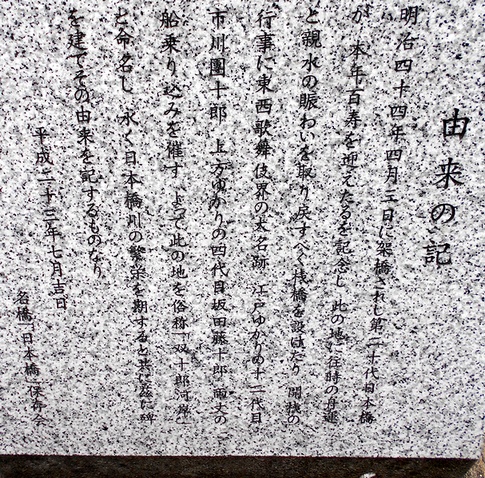 由来の記
明治四十四年四月三日に架橋されし第二十代日本橋
が 本年百寿を迎えたるを記念し 此の地に往時の舟運
と親水の賑わいを取り戻すべく桟橋を設けたり 開桟の
行事に東西歌舞伎界の大名跡 江戸ゆかりの十二代目
市川團十郎 上方ゆかりの四代目坂田藤十郎 両丈の
船乗り込みを催す よって此の地を俗称「双十郎河岸」
と命名し 永く日本橋川の繁栄を期すると共に茲に碑
を建てその由来を記するものなり
平成二十三年七月吉日
名橋「日本橋」保存会